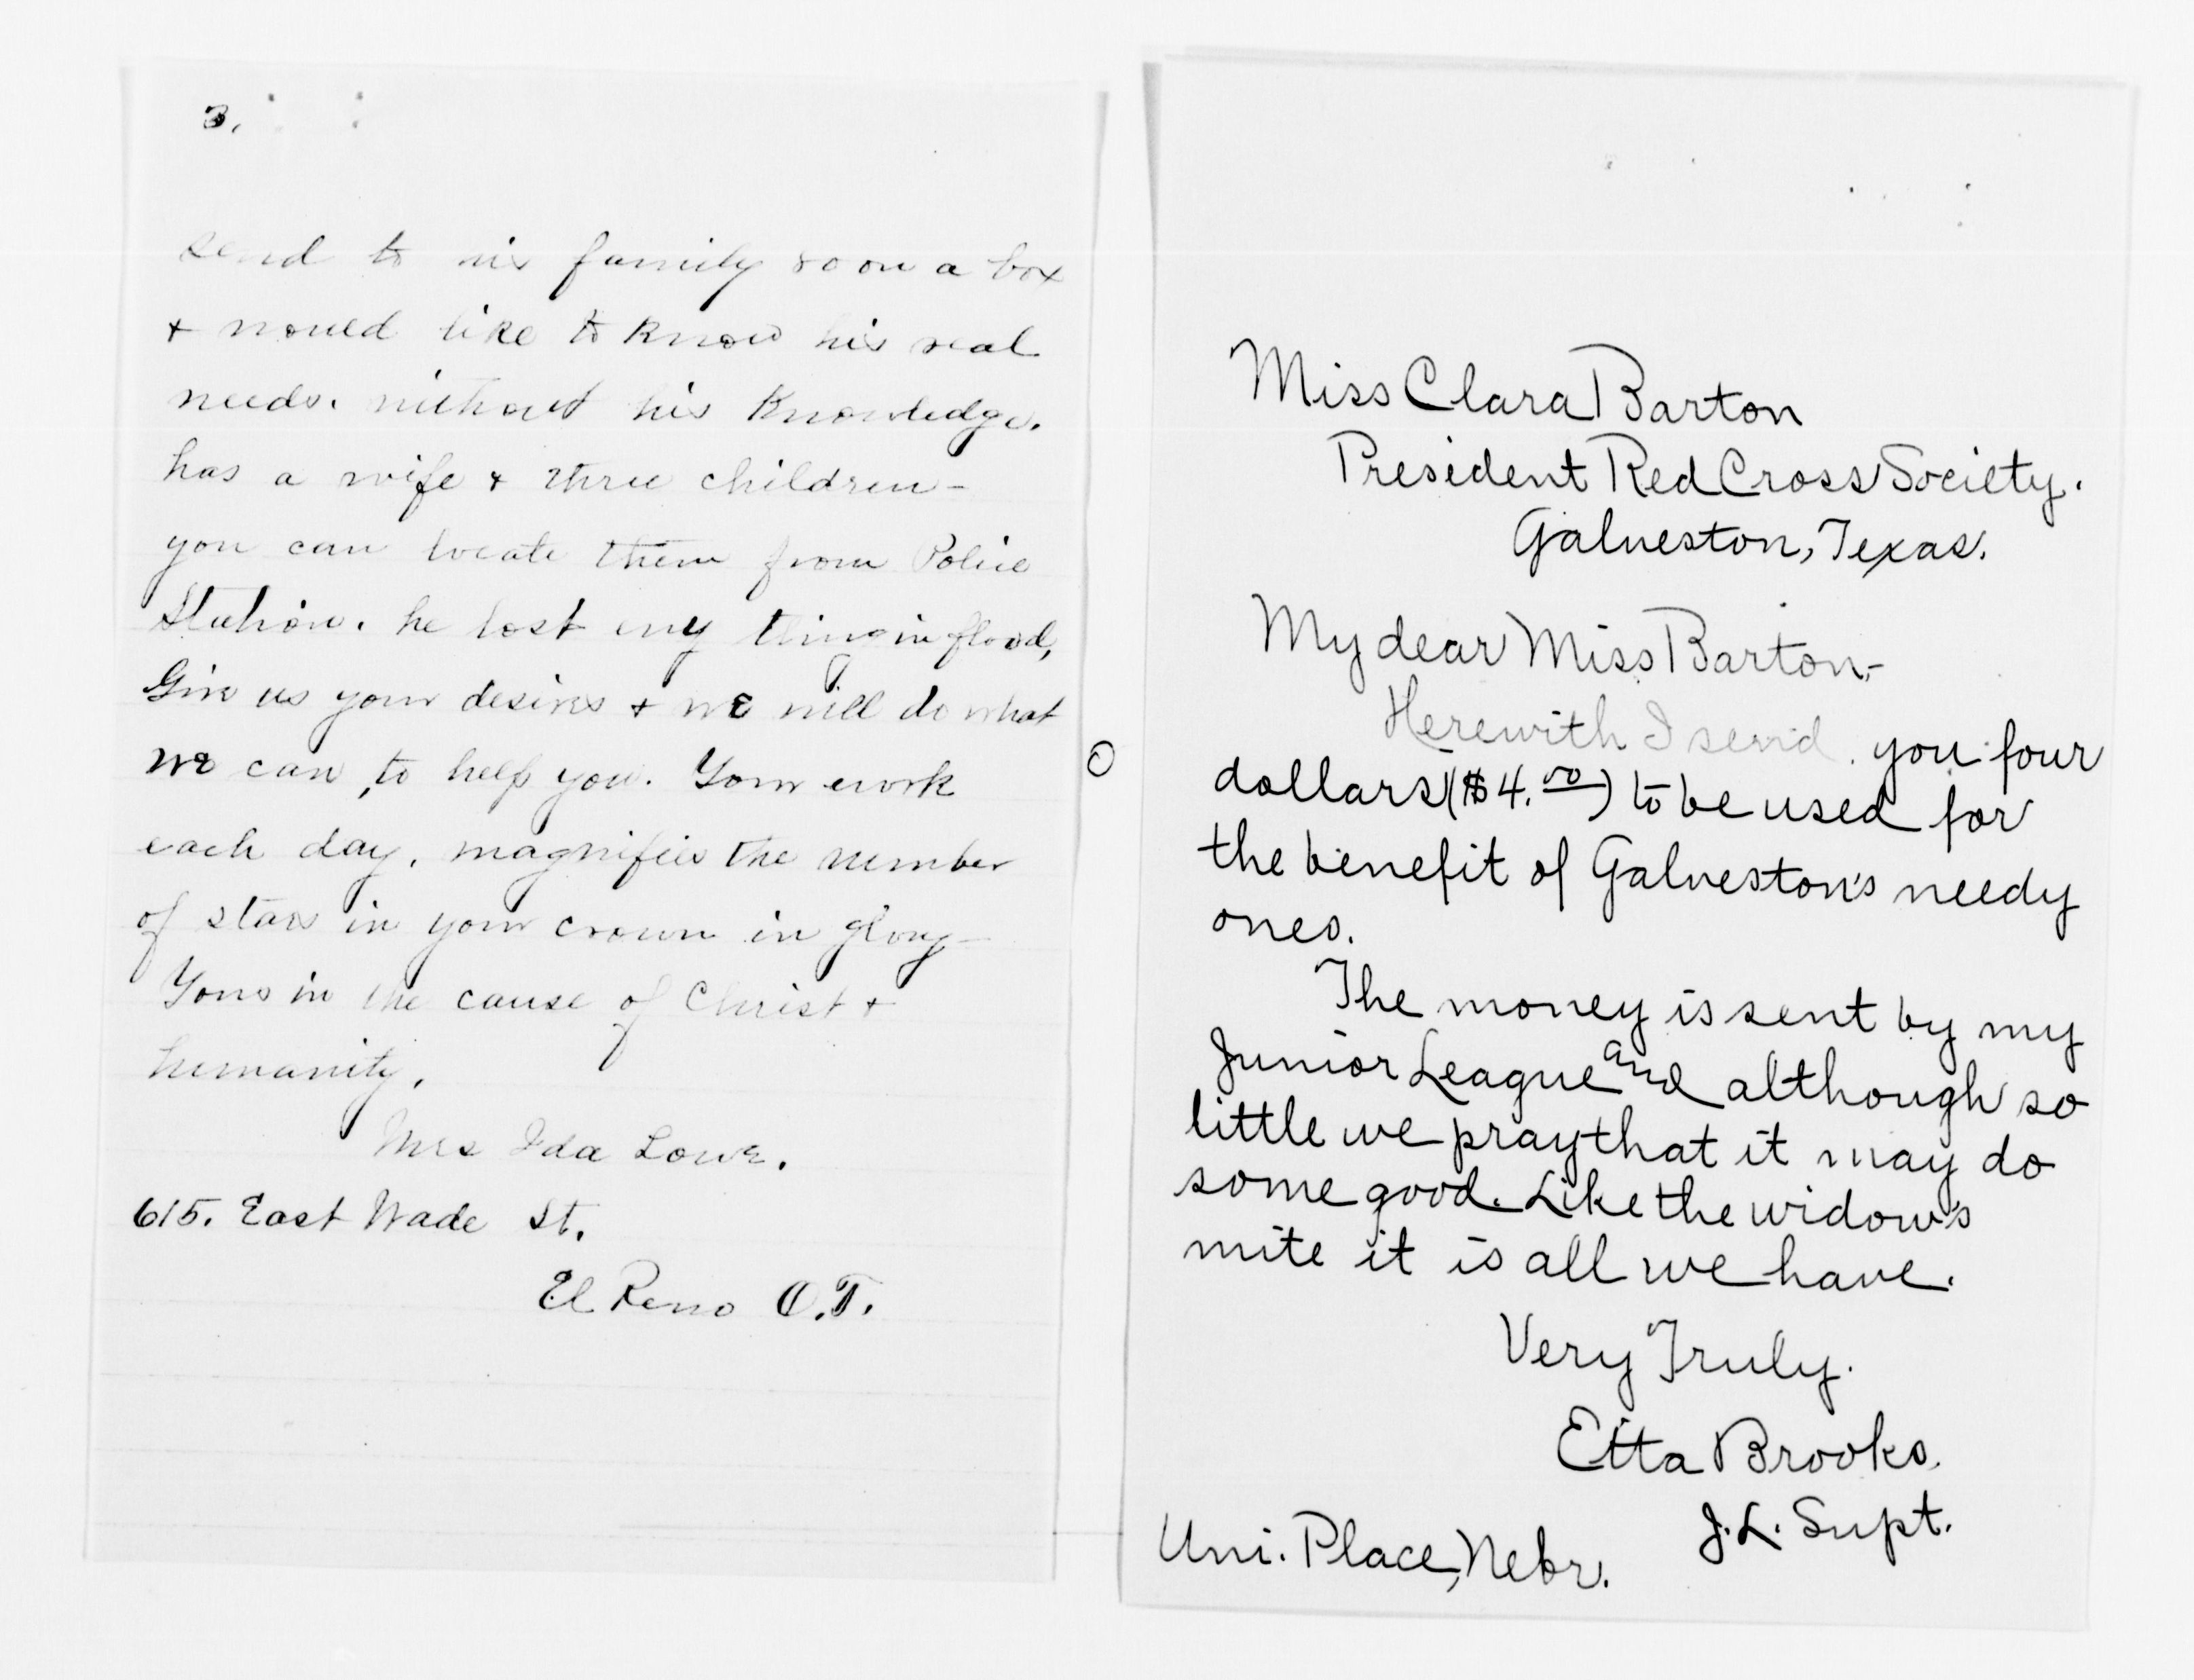 3.
send to his family soon a box
+ would like to know his real
needs. without his knowledge.
has a wife + three children -
you can locate them from Police
Station. he lost evy thing in flood,
Give us your desires + we will do what
we can, to help you. Your work
each day, magnifies the number
of stars in your crown in glory -
Yours in the cause of Christ +
humanity.
Mrs Ida Lowe.
615. East Wade St.
El Reno O.T.
Miss Clara Barton
President Red Cross Society.
Galveston, Texas.
My dear Miss Barton,-
Herewith I send you four
dollars ($4.00) to be used for
the benefit of Galveston's needy
ones.
The money is sent by my
Junior League and although so
little we pray that it may do
some good. Like the widow's
mite it is all we have.
Very Truly.
Etta Brooks.
J.L. Supt.
Uni. Place, Nebr.